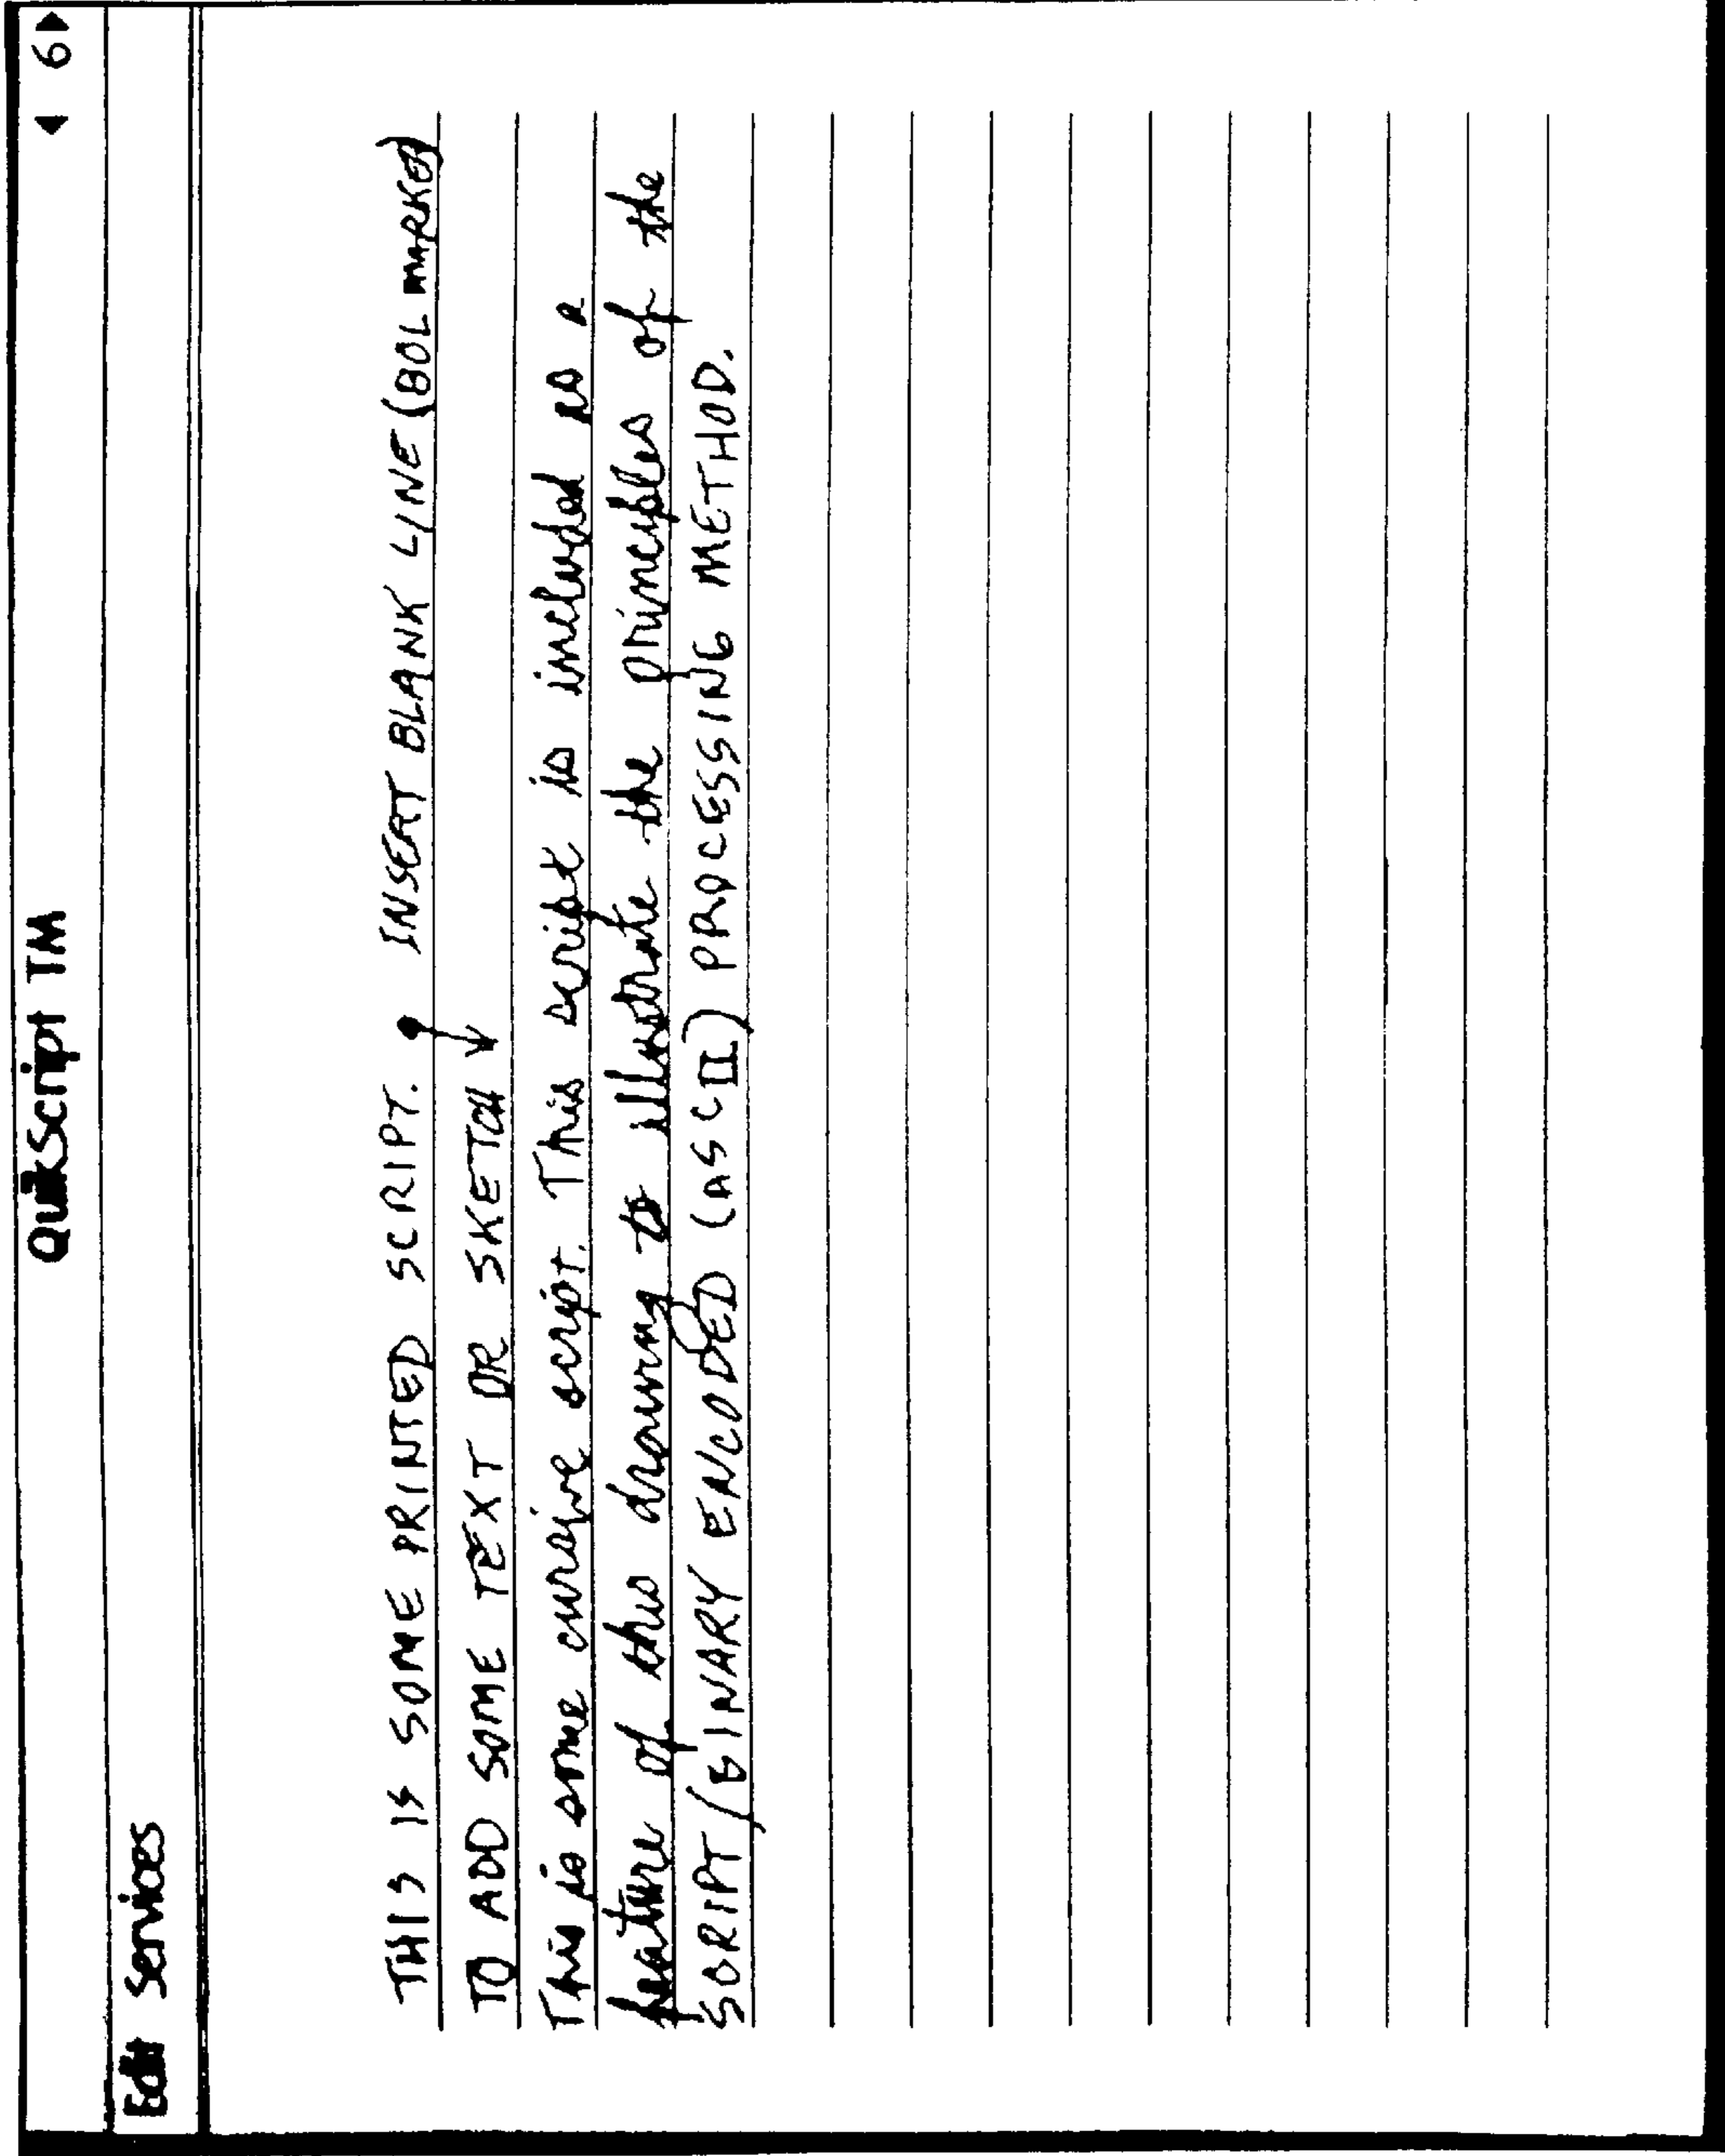 QuikScript TM ◀ 6 ▶
Edit Services
THIS IS SOME PRINTED SCRIPT. INSERT BLANK LINE (BOL MARKED)
TO ADD SOME TEXT OR SKETCH
This is some cursive script. This script is included as a
feature of this drawing to illustrate the principles of the
SCRIPT/BINARY ENCODED (ASCII) PROCESSING METHOD.